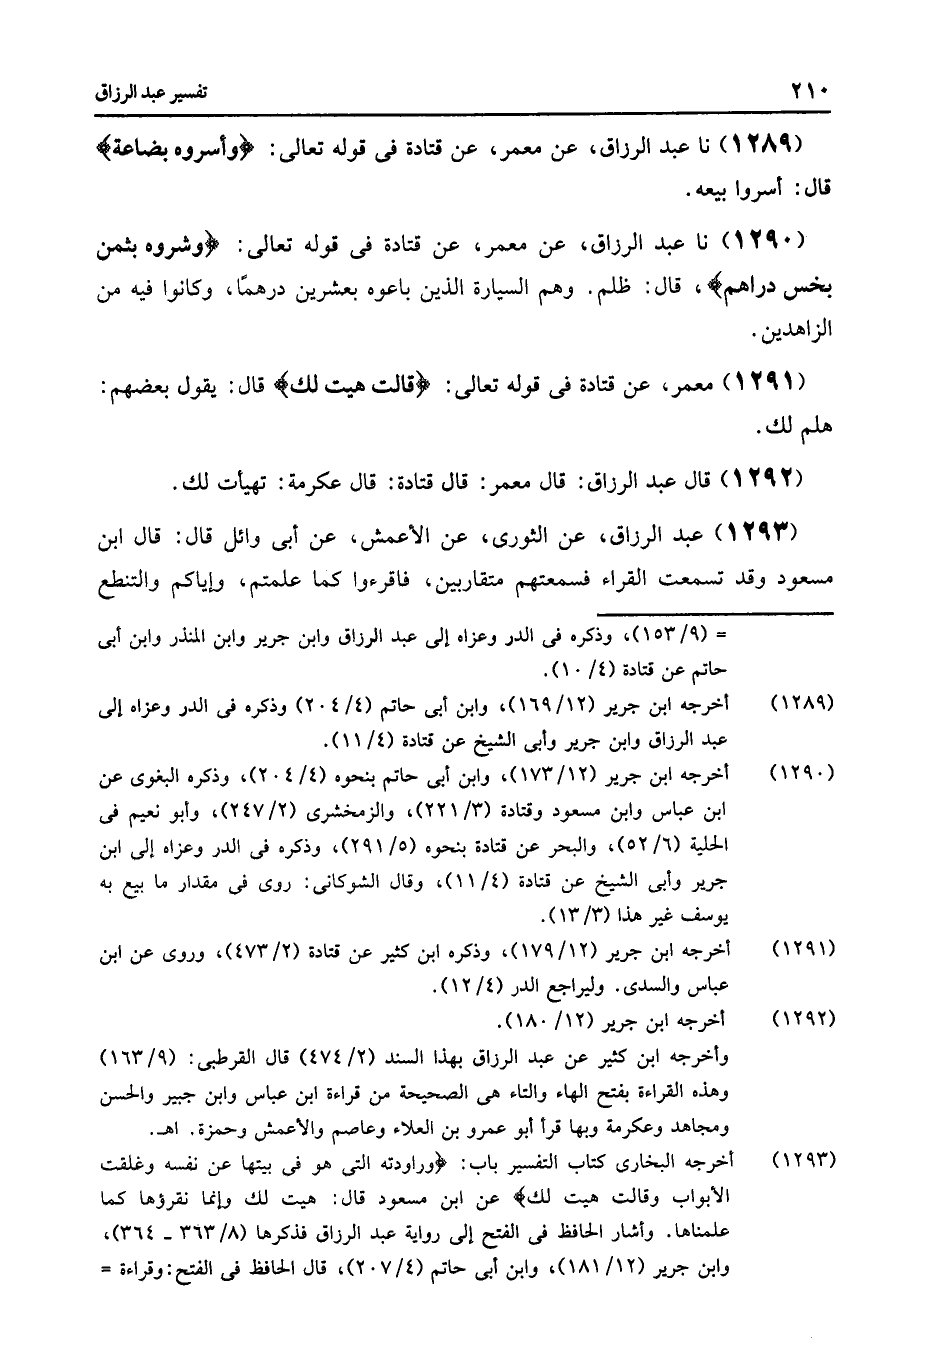 ٢١٠ تفسير عبد الرزاق
(١٢٨٩) نا عبد الرزاق، عن معمر، عن قتادة فى قوله تعالى: ﴿وأسروه بضاعة﴾
قال: أسروا بيعه.
(١٢٩٠) نا عبد الرزاق، عن معمر، عن قتادة فى قوله تعالى: ﴿وشروه بثمن
بخس دراهم﴾، قال: ظلم. وهم السيارة الذين باعوه بعشرين درهمًا، وكانوا فيه من
الزاهدين.
(١٢٩١) معمر، عن قتادة فى قوله تعالى: ﴿قالت هيت لك﴾ قال: يقول بعضهم:
هلم لك.
(١٢٩٢) قال عبد الرزاق: قال معمر: قال قتادة: قال عكرمة: تهيأت لك.
(١٢٩٣) عبد الرزاق، عن الثورى، عن الأعمش، عن أبى وائل قال: قال ابن
مسعود وقد تسمعت القراء فسمعتهم متقاربين، فاقرءوا كما علمتم، وإياكم والتنطع
= (١٥٣/٩)، وذكره فى الدر وعزاه إلى عبد الرزاق وابن جرير وابن المنذر وابن أبى
حاتم عن قتادة (١٠/٤).
(١٢٨٩) أخرجه ابن جرير (١٦٩/١٢)، وابن أبى حاتم (٢٠٤/٤) وذكره فى الدر وعزاه إلى
عبد الرزاق وابن جرير وأبى الشيخ عن قتادة (١١/٤).
(١٢٩٠) أخرجه ابن جرير (١٧٣/١٢)، وابن أبى حاتم بنحوه (٢٠٤/٤)، وذكره البغوى عن
ابن عباس وابن مسعود وقتادة (٢٢١/٣)، والزمخشرى (٢٤٧/٢)، وأبو نعيم فى
الحلية (٥٢/٦)، والبحر عن قتادة بنحوه (٢٩١/٥)، وذكره فى الدر وعزاه إلى ابن
جرير وأبى الشيخ عن قتادة (١١/٤)، وقال الشوكانى: روى فى مقدار ما بيع به
يوسف غير هذا (١٣/٣).
(١٢٩١) أخرجه ابن جرير (١٧٩/١٢)، وذكره ابن كثير عن قتادة (٤٧٣/٢)، وروى عن ابن
عباس والسدى. وليراجع الدر (١٢/٤).
(١٢٩٢) أخرجه ابن جرير (١٨٠/١٢).
وأخرجه ابن كثير عن عبد الرزاق بهذا السند (٤٧٤/٢) قال القرطبى: (١٦٣/٩)
وهذه القراءة بفتح الهاء والتاء هى الصحيحة من قراءة ابن عباس وابن جبير والحسن
ومجاهد وعكرمة وبها قرأ أبو عمرو بن العلاء وعاصم والأعمش وحمزة. اهـ.
(١٢٩٣) أخرجه البخارى كتاب التفسير باب: ﴿وراودته التى هو فى بيتها عن نفسه وغلقت
الأبواب وقالت هيت لك﴾ عن ابن مسعود قال: هيت لك وإنما نقرؤها كما
علمناها. وأشار الحافظ فى الفتح إلى رواية عبد الرزاق فذكرها (٣٦٣/٨ ـ ٣٦٤)،
وابن جرير (١٨١/١٢)، وابن أبى حاتم (٢٠٧/٤)، قال الحافظ فى الفتح: وقراءة =